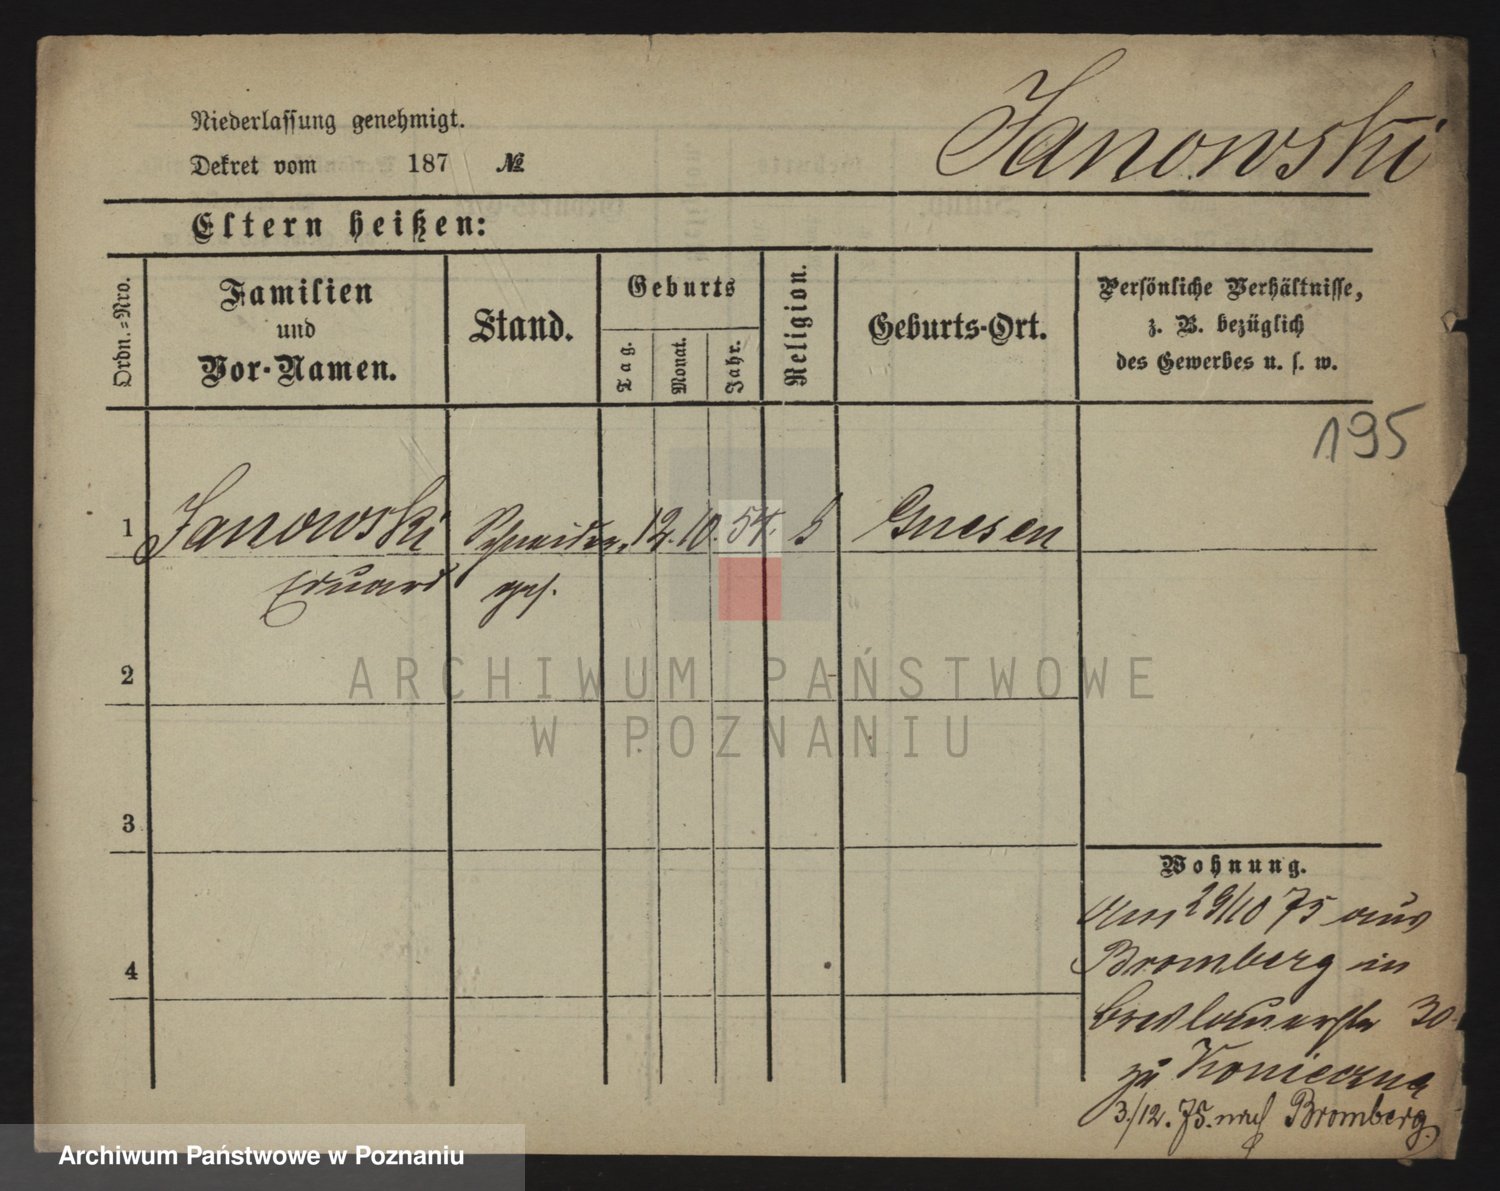 Niederlassung genehmigt.
Dekret vom 187 №
Janowski
Eltern heißen:
Ordn.=Nro.
Familien
und
Vor-Namen.
Stand.
Geburts
Tag.
Monat.
Jahr.
Religion.
Geburts-Ort.
Persönliche Verhältnisse,
z. B. bezüglich
des Gewerbes u. s. w.
195
1 Janowski Schneider 12. 10. 54. Gnesen
Eduard
2
3
4
ARCHIWUM PAŃSTWOWE
W POZNANIU
Wohnung.
Am 29/10 75 aus
Bromberg in
Breslauerstr 30
zu Konieczna
3./12. 75. nach Bromberg.
Archiwum Państwowe w Poznaniu